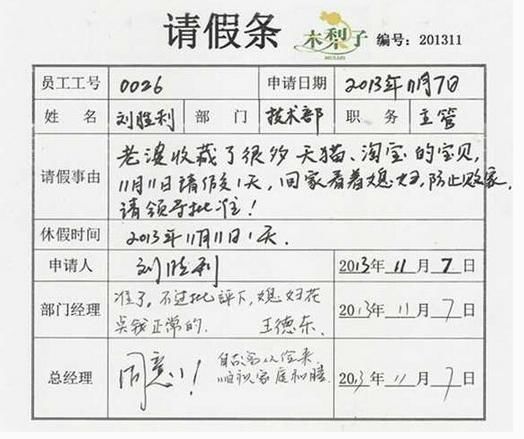 请假条
木梨子
MULIZI
编号：201311
员工工号 0026 申请日期 2013年11月7日
姓名 刘胜利 部门 技术部 职务 主管
请假事由
老婆收藏了很多天猫、淘宝的宝贝，
11月11日请假1天，回家看着媳妇，防止败家，
请领导批准！
休假时间 2013年11月11日1天.
申请人 刘胜利 2013年11月7日
部门经理
准了，不过批评下，媳妇花
点钱正常的. 王德东.
2013年11月7日
总经理 同意！
自古穷从俭来，
顺祝家庭和睦
2013年11月7日